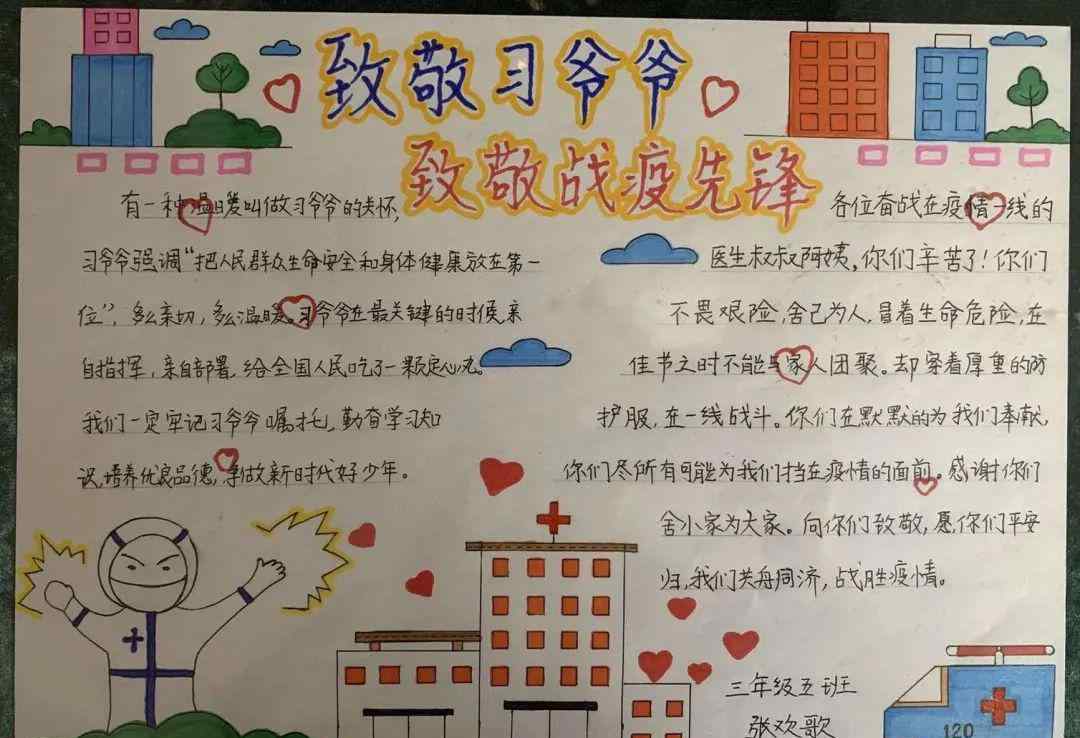 致敬习爷爷
致敬战疫先锋
有一种温暖叫做习爷爷的关怀,
习爷爷强调“把人民群众生命安全和身体健康放在第一
位”,多么亲切,多么温暖。习爷爷在最关键的时候亲
自指挥,亲自部署,给全国人民吃了一颗定心丸。
我们一定牢记习爷爷嘱托,勤奋学习知
识,培养优良品德,争做新时代好少年。
各位奋战在疫情一线的
医生叔叔阿姨,你们辛苦了!你们
不畏艰险,舍己为人,冒着生命危险,在
佳节之时不能与家人团聚。却穿着厚重的防
护服,在一线战斗。你们在默默的为我们奉献,
你们尽所有可能为我们挡在疫情的面前。感谢你们
舍小家为大家。向你们致敬,愿你们平安
归,我们共舟同济,战胜疫情。
三年级五班
张欢歌
120